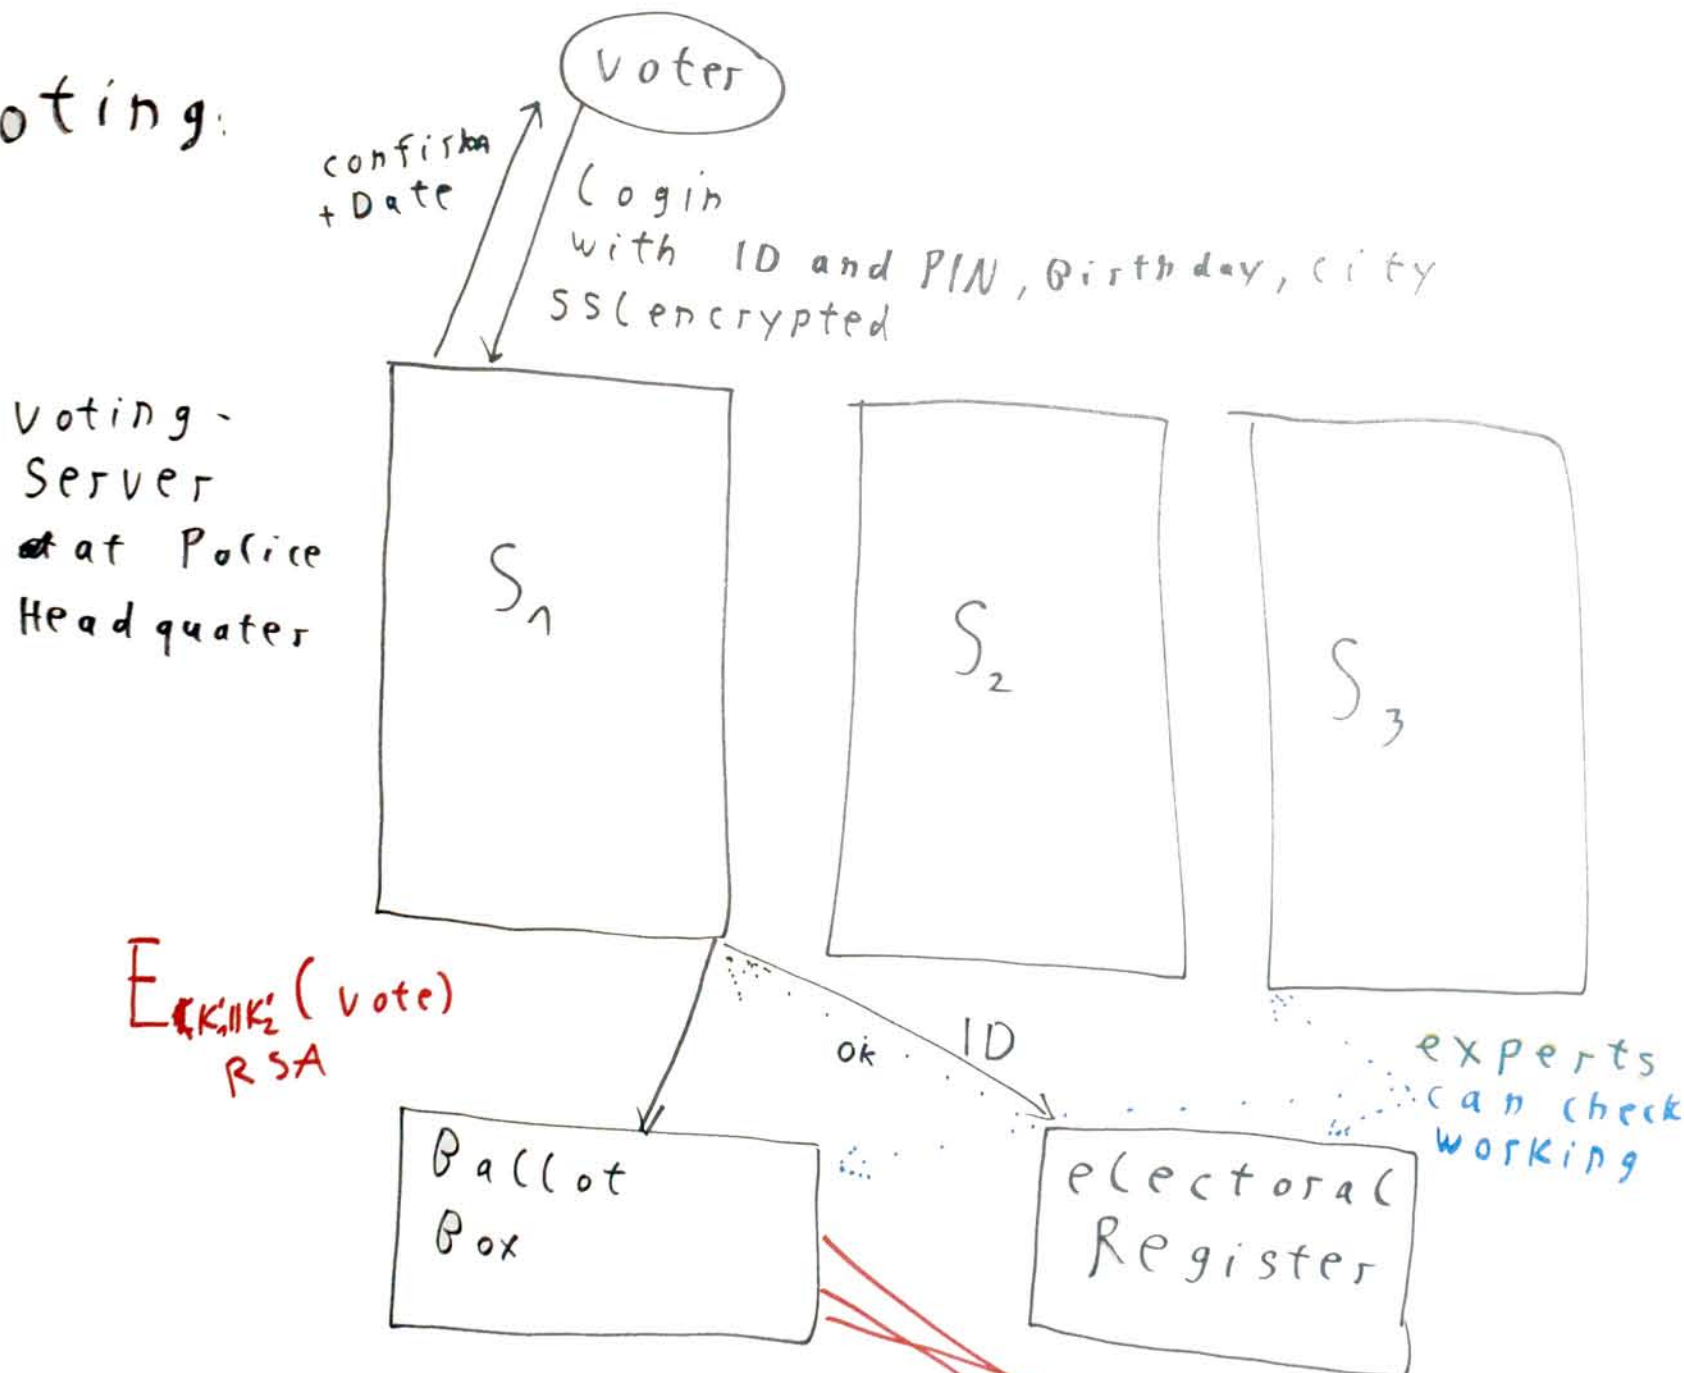 oting:
voter
confirm
+ Date
Login
with ID and PIN, Birthday, city
SSL encrypted
Voting-
Server
at Police
Headquater
S1
S2
S3
E K1'||K2' (vote)
RSA
ok
ID
experts
can check
working
Ballot
Box
electoral
Register